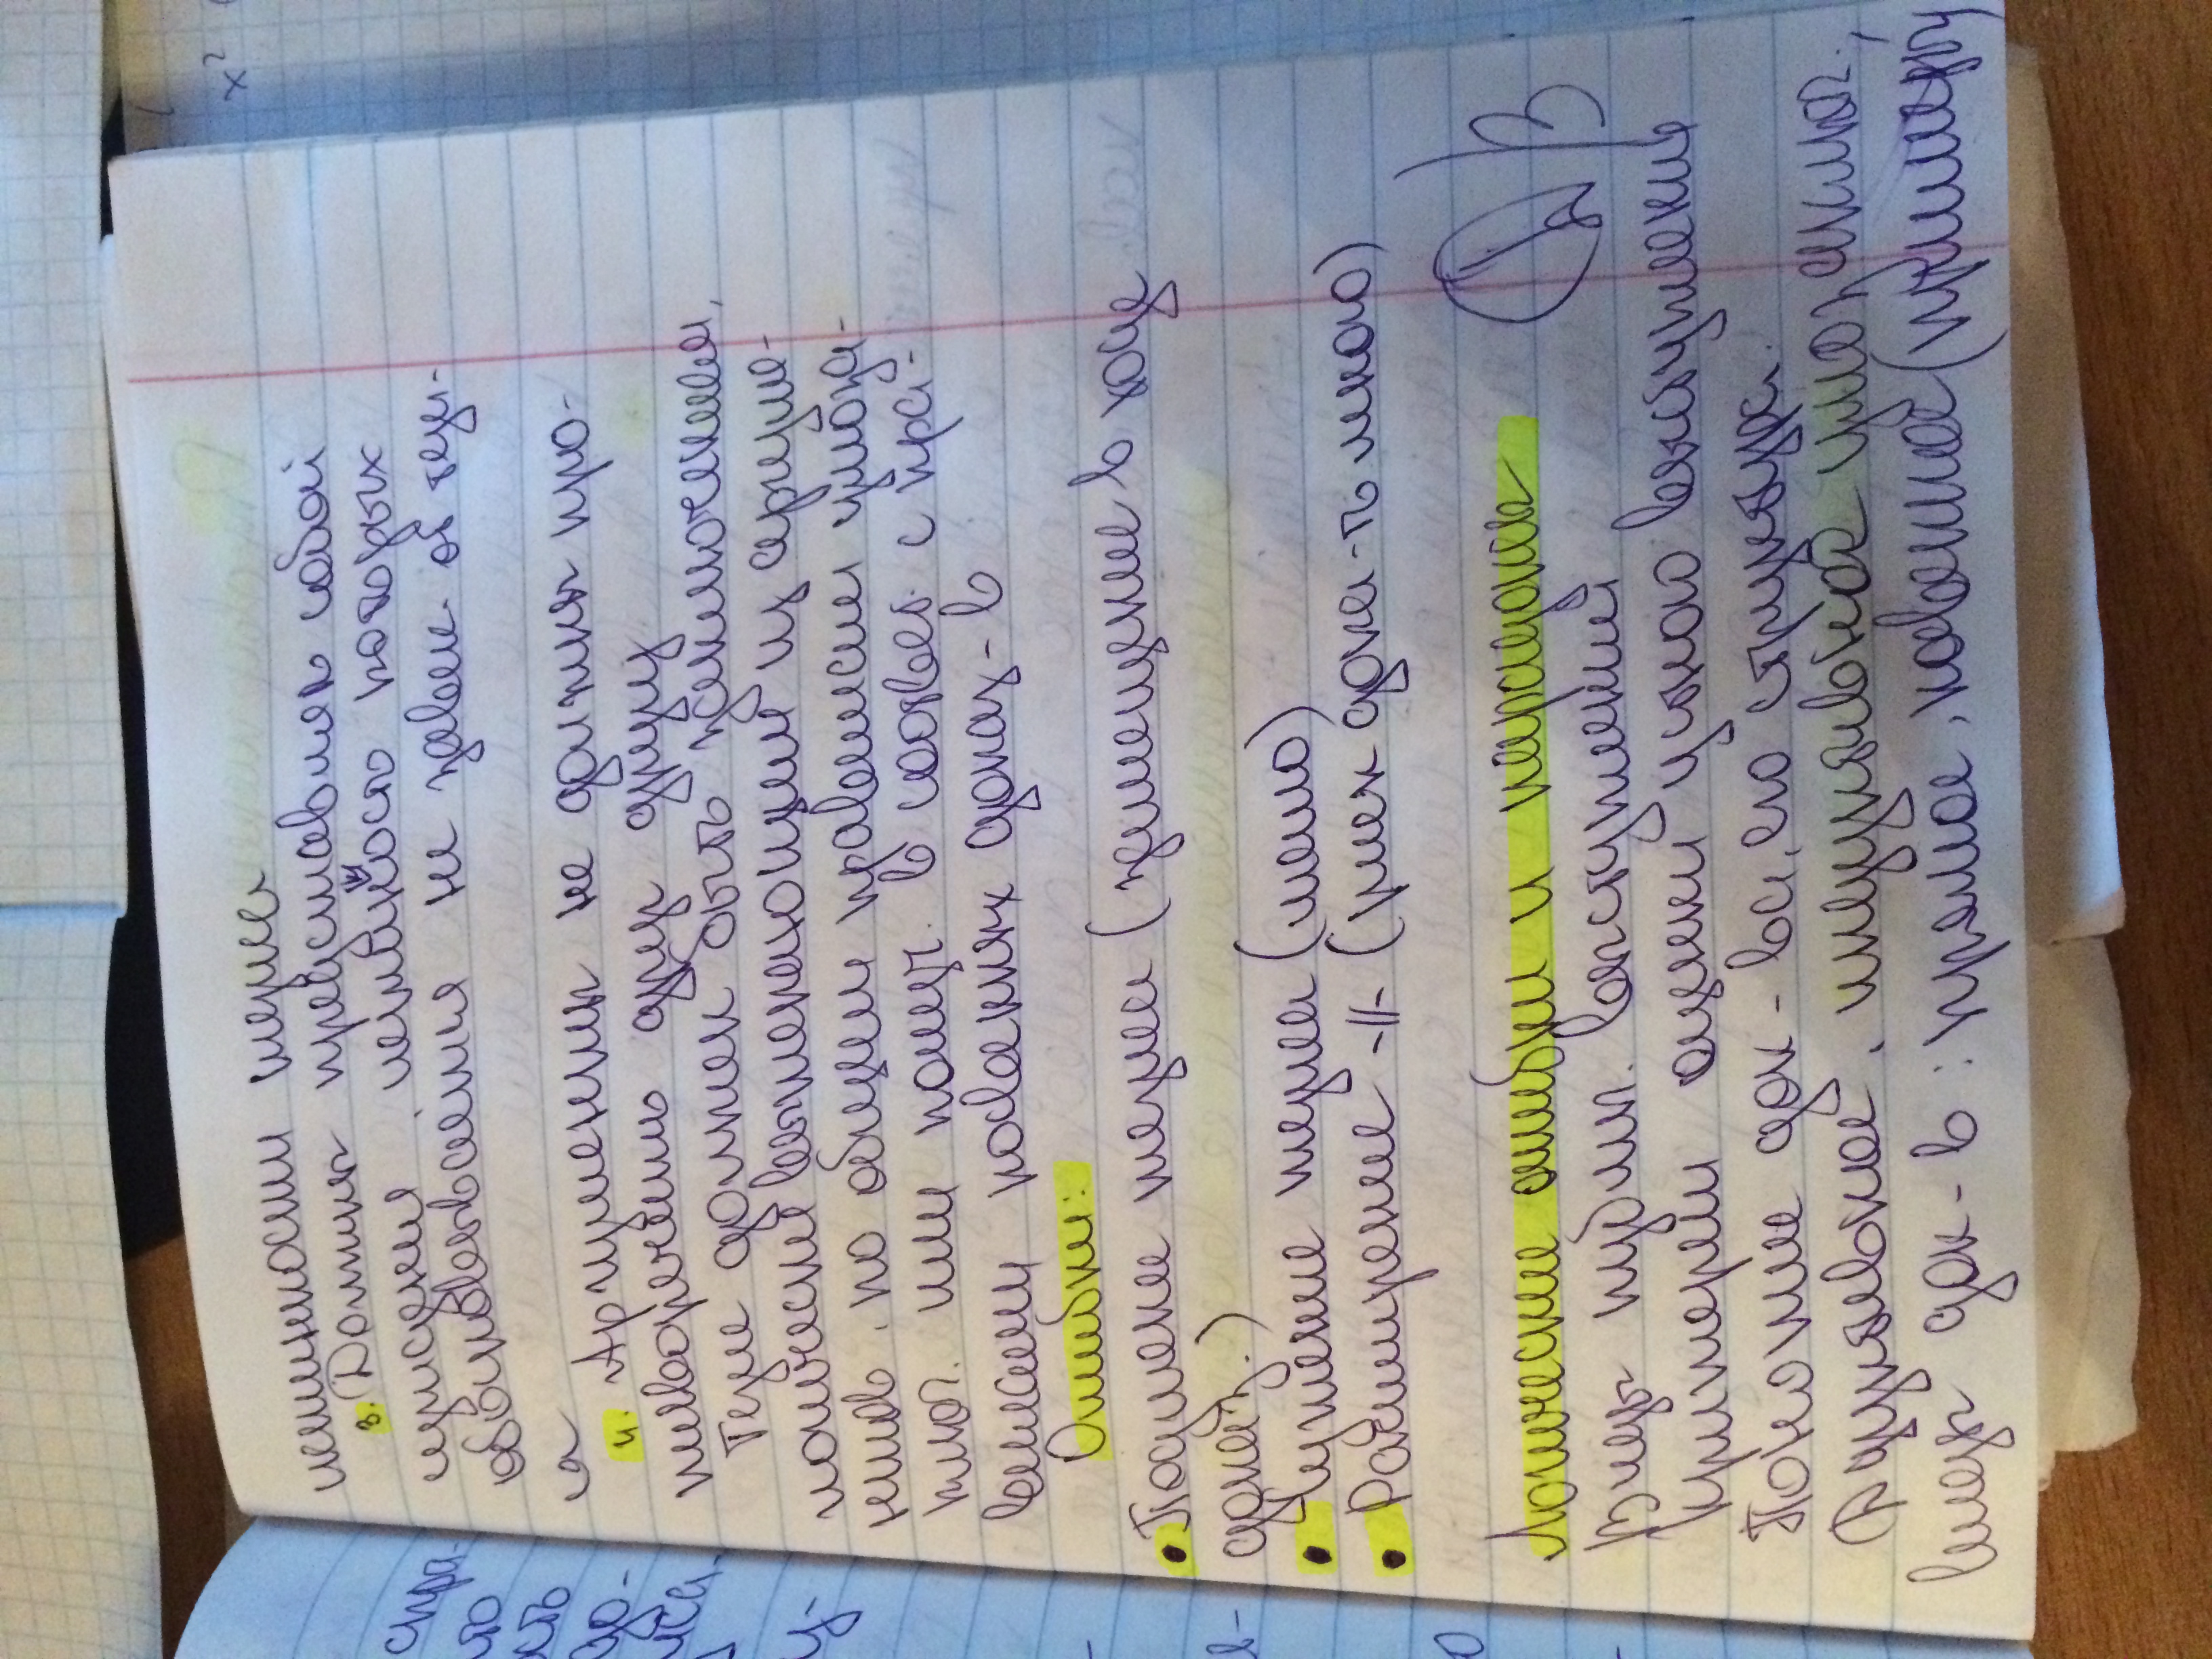 истинности тезиса
3. Должны представлять собой
суждения, истинность которых
обосновывается не завис. от тези-
са
4. Аргументы не должны про-
тиворечить друг другу
Тезис должен быть заключением,
логически вытекающим из аргуме-
нтов, по общим правилам умоза-
ключ. или получ. в соответ. с пра-
вилами косвенных доказ-в
Ошибки:
• Подмена тезиса (замещение в ходе
доказ.)
• Сужение тезиса (мало)
• Расширение -||- (риск дока-ть много)
Логические ошибки и парадоксы
Д/З
Виды публич. выступлений
Критерии оценки устного выступления
Понятие док-ва, его структура.
Дедуктивное, индуктивное умозаключ.,
виды док-в: прямое, косвенное (примеры)
спра-
что
ость
до-
иса-
у-
в-
о
x²